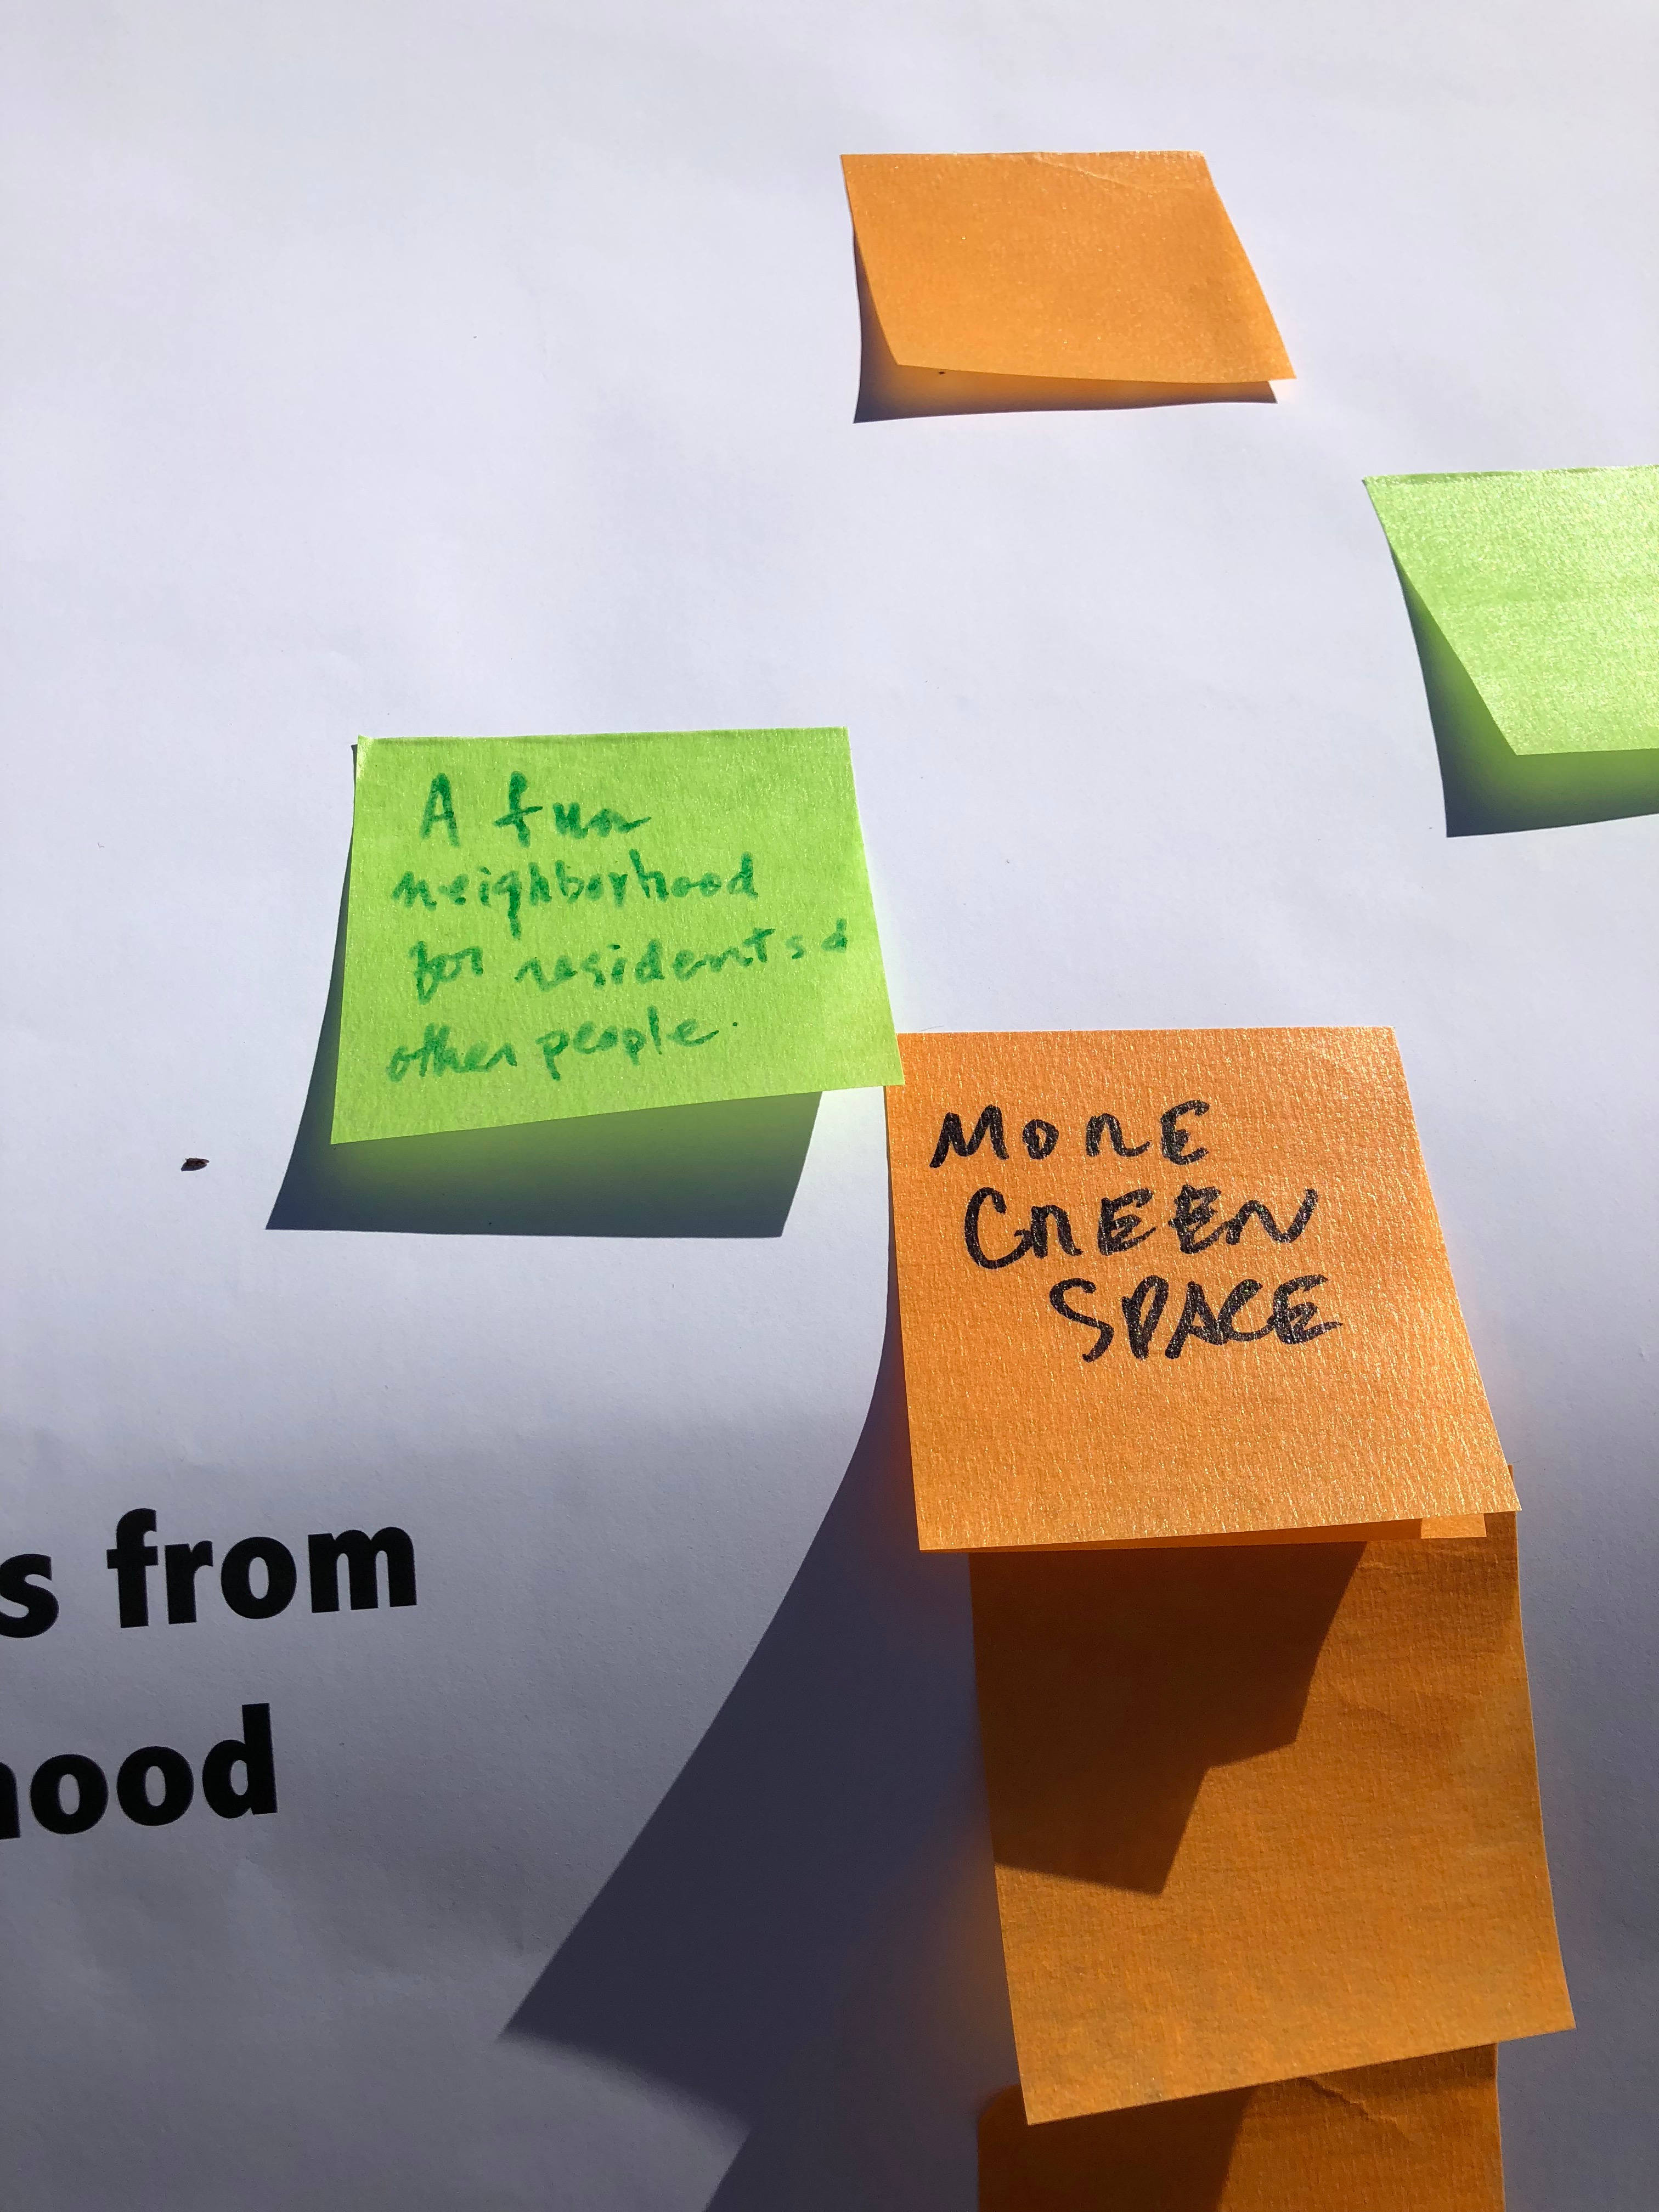 A fun
neighborhood
for residents &
other people.
MORE
GREEN
SPACE
s from
hood